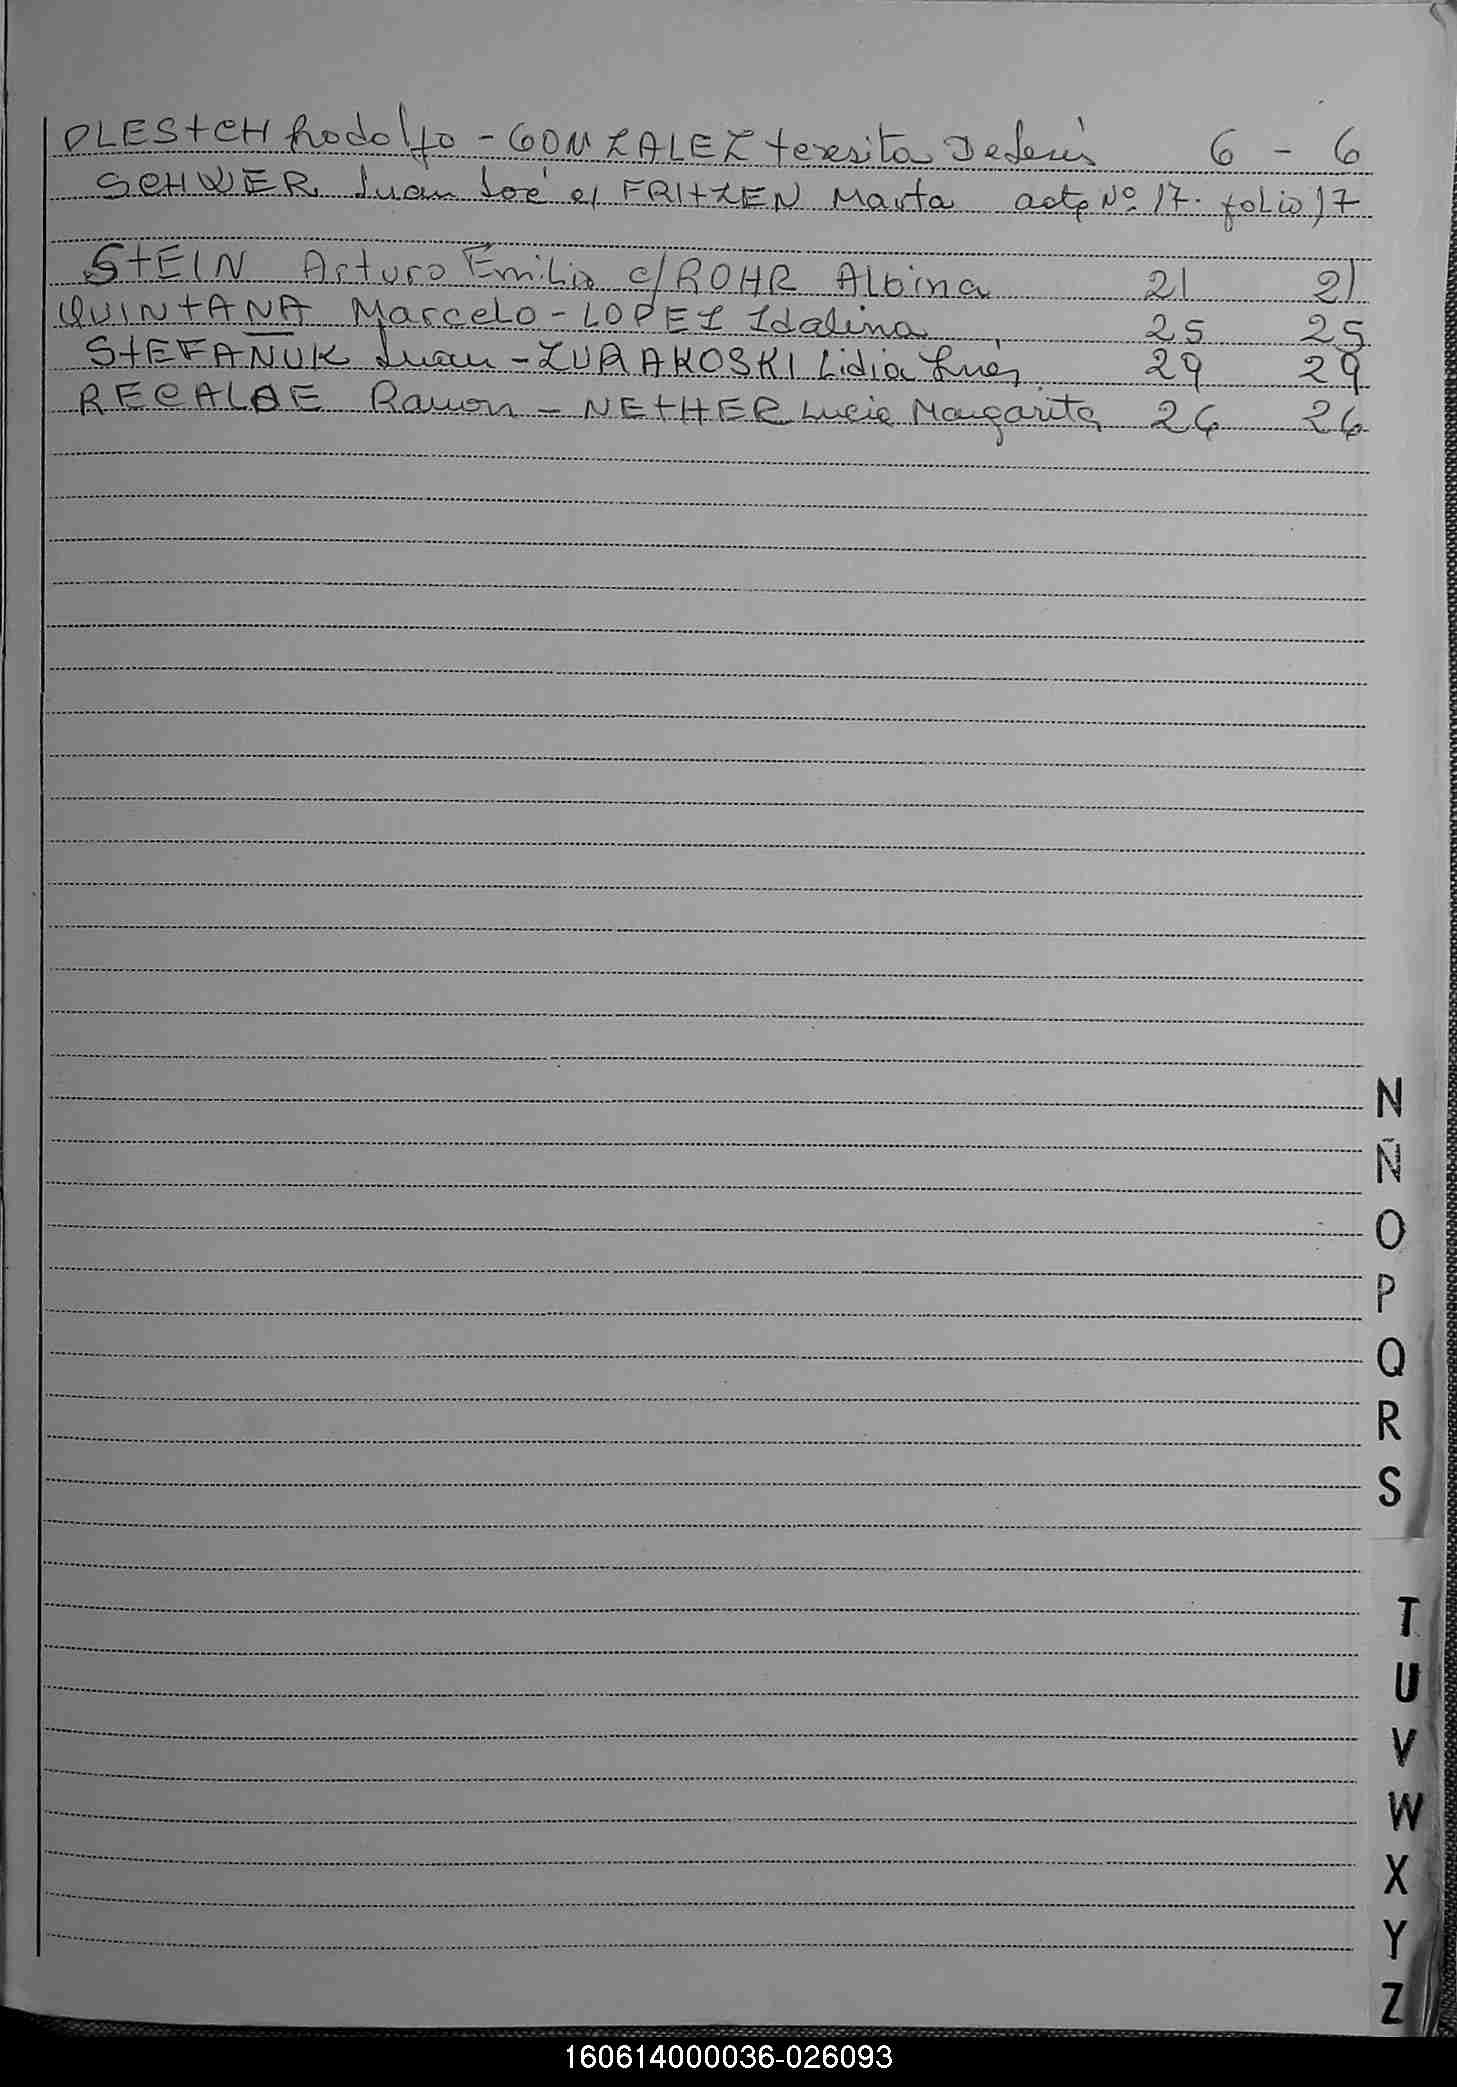 OLESTCH Rodolfo - GONZALEZ teresita De Jesús 6 - 6
SCHWER Juan José c/ FRITZEN Marta acta Nº 17. folio 17
STEIN Arturo Emilio c/ ROHR Albina 21 21
QUINTANA Marcelo - LOPEZ Idalina 25 25
STEFAÑUK Juan - ZURAKOSKI Lidia Inés 29 29
RECALDE Ramon - NETHER Lucia Margarita 26 26
N
Ñ
O
P
Q
R
S
T
U
V
W
X
Y
Z
160614000036-026093